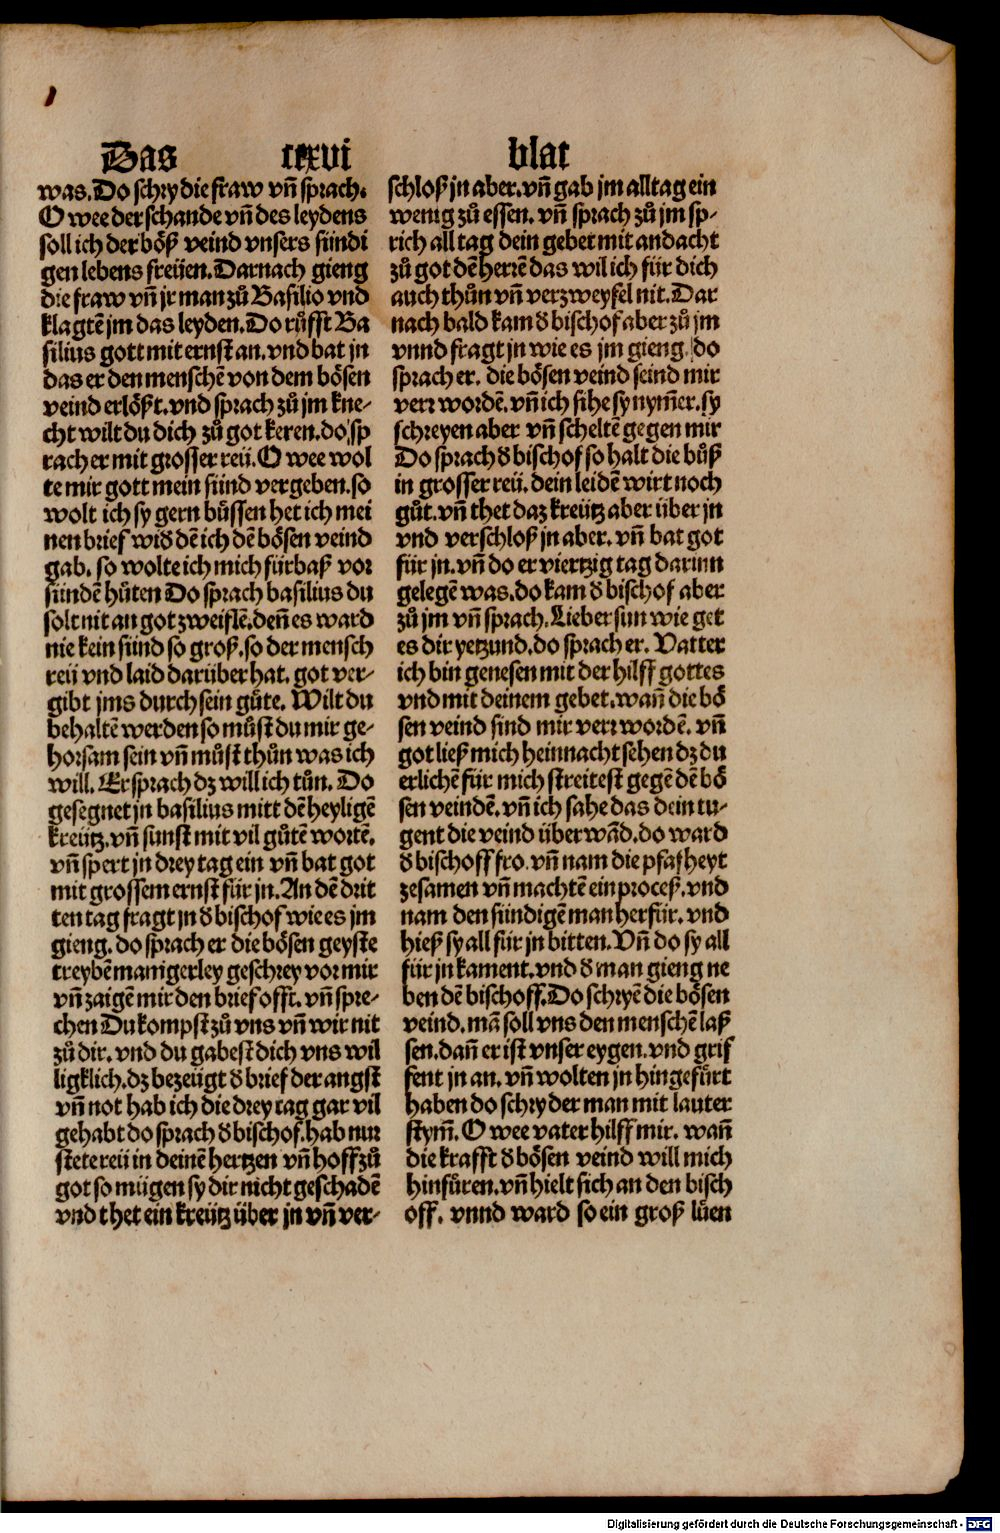 Das ccxvi blat
was. Do schry die fraw vñ sprach.
O wee der schande vñ des leydens
soll ich der böß veind vnsers sündi
gen lebens freüen. Darnach gieng
die fraw vñ jr man zů Basilio vnd
klagtē jm das leyden. Do růfft Ba
silius gott mit ernst an. vnd bat jn
das er den menschē von dem bösen
veind erlößt. vnd sprach zů jm kne-
cht wilt du dich zů got keren. do sp
rach er mit grosser reü. O wee wol
te mir gott mein sünd vergeben. so
wolt ich sy gern bůssen het ich mei
nen brief wid̕ dē ich dē bösen veind
gab. so wolte ich mich fürbaß vor
sündē hůten Do sprach basilius du
solt nit an got zweiflē. deñ es ward
nie kein sünd so groß. so der mensch
reü vnd laid darüber hat. got ver-
gibt jms durch sein gůte. Wilt du
behaltē werden so můst du mir ge-
horsam sein vñ můst thůn was ich
will. Er sprach dz will ich tůn. Do
gesegnet jn basilius mitt dē heyligē
kreütz. vñ sunst mit vil gůtē wortē.
vñ spert jn drey tag ein vñ bat got
mit grossem ernst für jn. An dē drit
ten tag fragt jn d̕ bischof wie es jm
gieng. do sprach er die bösen geyste
treybē manigerley geschrey vor mir
vñ zaigē mir den brief offt. vñ spre-
chen Du kompst zů vns vñ wir nit
zů dir. vnd du gabest dich vns wil
ligklich. dz bezeügt d̕ brief der angst
vñ not hab ich die drey tag gar vil
gehabt do sprach d̕ bischof. hab nur
stete reü in deinē hertzen vñ hoff zů
got so mügen sy dir nicht geschadē
vnd thet ein kreütz über jn vñ ver-
schloß jn aber. vñ gab jm alltag ein
wenig zů essen. vñ sprach zů jm sp-
rich all tag dein gebet mit andacht
zů got dē herrē das wil ich für dich
auch thůn vñ verzweyfel nit. Dar
nach bald kam d̕ bischof aber zů jm
vnnd fragt jn wie es jm gieng. do
sprach er. die bösen veind seind mir
verr wordē. vñ ich sihe sy nym̄er. sy
schreyen aber vñ scheltē gegen mir
Do sprach d̕ bischof so halt die bůß
in grosser reü. dein leidē wirt noch
gůt. vñ thet daz kreütz aber über jn
vnd verschloß jn aber. vñ bat got
für jn. vñ do er viertzig tag darinn
gelegē was. do kam d̕ bischof aber
zů jm vñ sprach. Lieber sun wie get
es dir yetzund. do sprach er. Vatter
ich bin genesen mit der hilff gottes
vnd mit deinem gebet. wañ die bö
sen veind sind mir verr wordē. vñ
got ließ mich heinnacht sehen dz du
erlichē für mich streitest gegē dē bö
sen veindē. vñ ich sahe das dein tu-
gent die veind überwād. do ward
d̕ bischoff fro. vñ nam die pfafheyt
zesamen vñ machtē ein proceß. vnd
nam den sündigē man herfür. vnd
hieß sy all für jn bitten. Vñ do sy all
für jn kament. vnd d̕ man gieng ne
ben dē bischoff. Do schryē die bösen
veind. mā soll vns den menschē laß
sen. dañ er ist vnser eygen. vnd grif
fent jn an. vñ wolten jn hingefůrt
haben do schry der man mit lauter
stym̄. O wee vater hilff mir. wañ
die krafft d̕ bösen veind will mich
hinfůren. vñ hielt sich an den bisch
off. vnnd ward so ein groß lůen
Digitalisierung gefördert durch die Deutsche Forschungsgemeinschaft - DFG